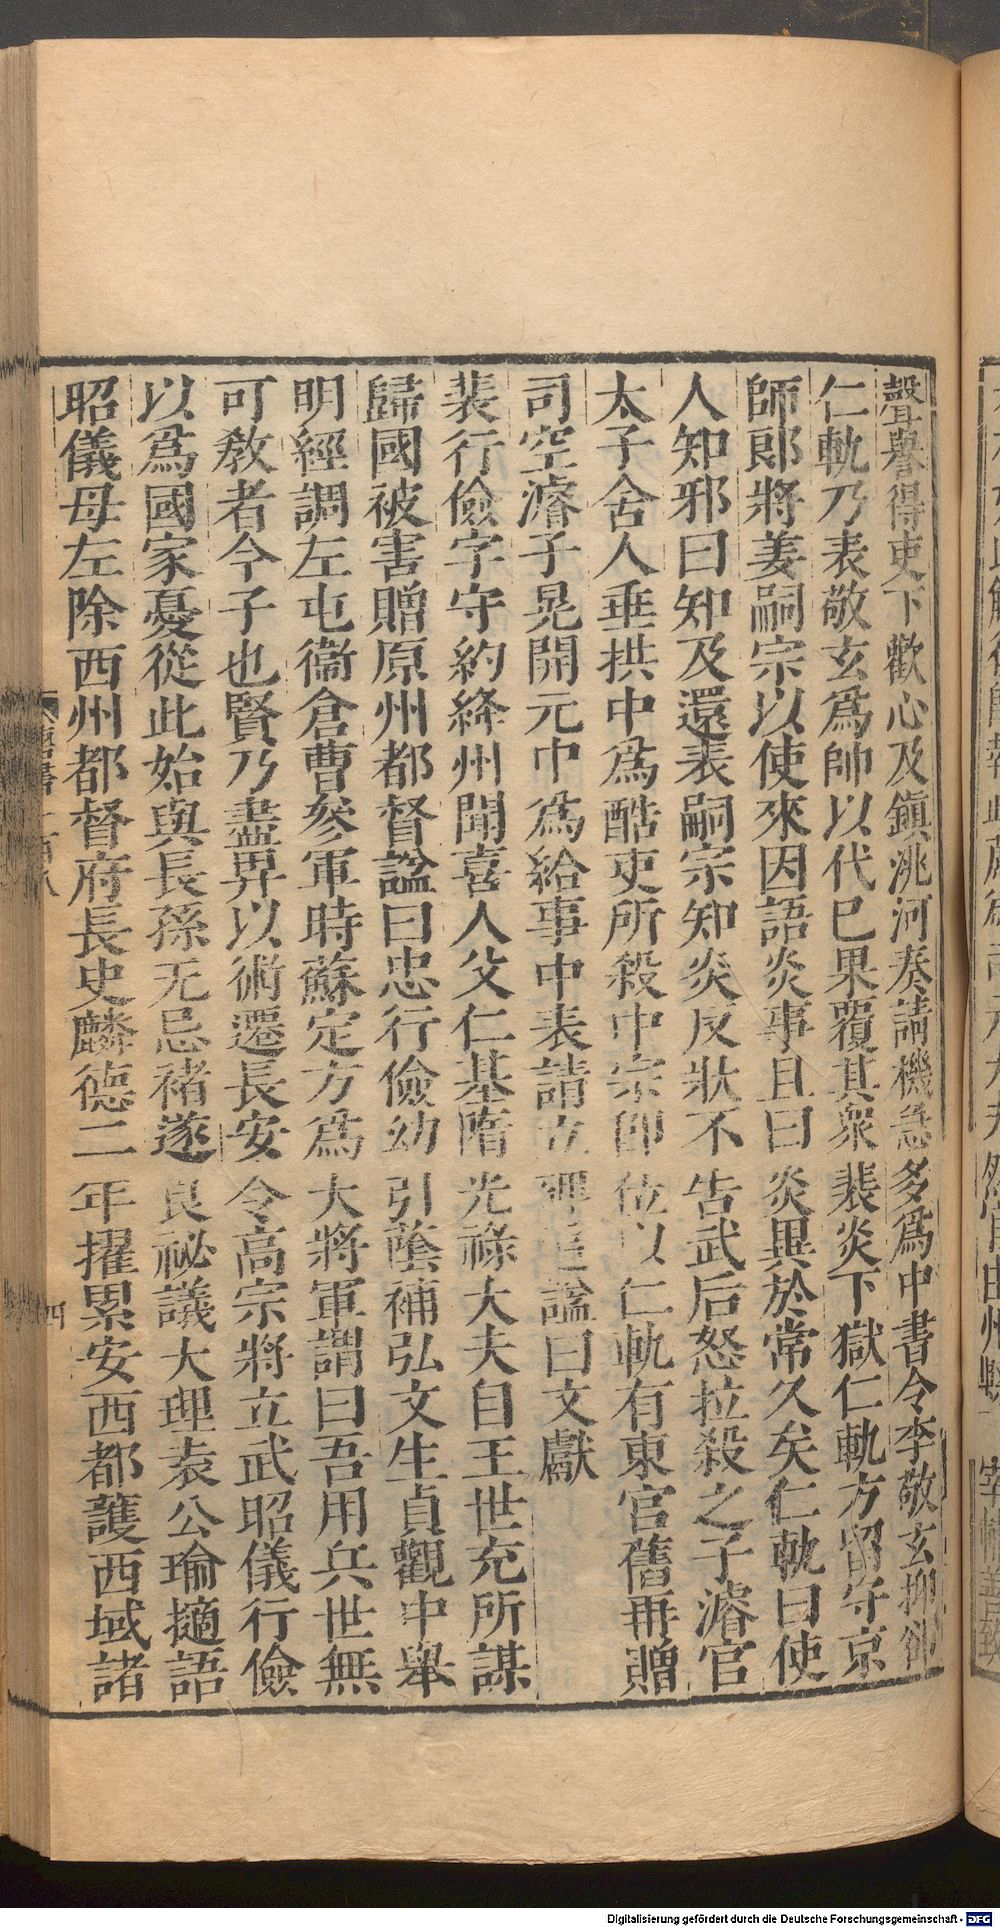 聲譽得吏下歡心及鎮洮河奏請機急多爲中書令李敬玄抑卻
仁軌乃表敬玄爲帥以代已果覆其衆裴炎下獄仁軌方留守京
師郎將姜嗣宗以使來因語炎事且曰炎異於常久矣仁軌曰使
人知邪曰知及還表嗣宗知炎反狀不告武后怒拉殺之子濬官
太子舍人垂拱中爲酷吏所殺中宗即位以仁軌有東宮舊再贈
司空濬子晃開元中爲給事中表請立碑追諡曰文獻
裴行儉字守約絳州聞喜人父仁基隋光祿大夫自王世充所謀
歸國被害贈原州都督諡曰忠行儉幼引蔭補弘文生貞觀中舉
明經調左屯衞倉曹參軍時蘇定方爲大將軍謂曰吾用兵世無
可敎者今子也賢乃盡畀以術遷長安令高宗將立武昭儀行儉
以爲國家憂從此始與長孫无忌褚遂良祕議大理袁公瑜擿語
昭儀母左除西州都督府長史麟德二年擢累安西都護西域諸
四
Digitalisierung gefördert durch die Deutsche Forschungsgemeinschaft - DFG